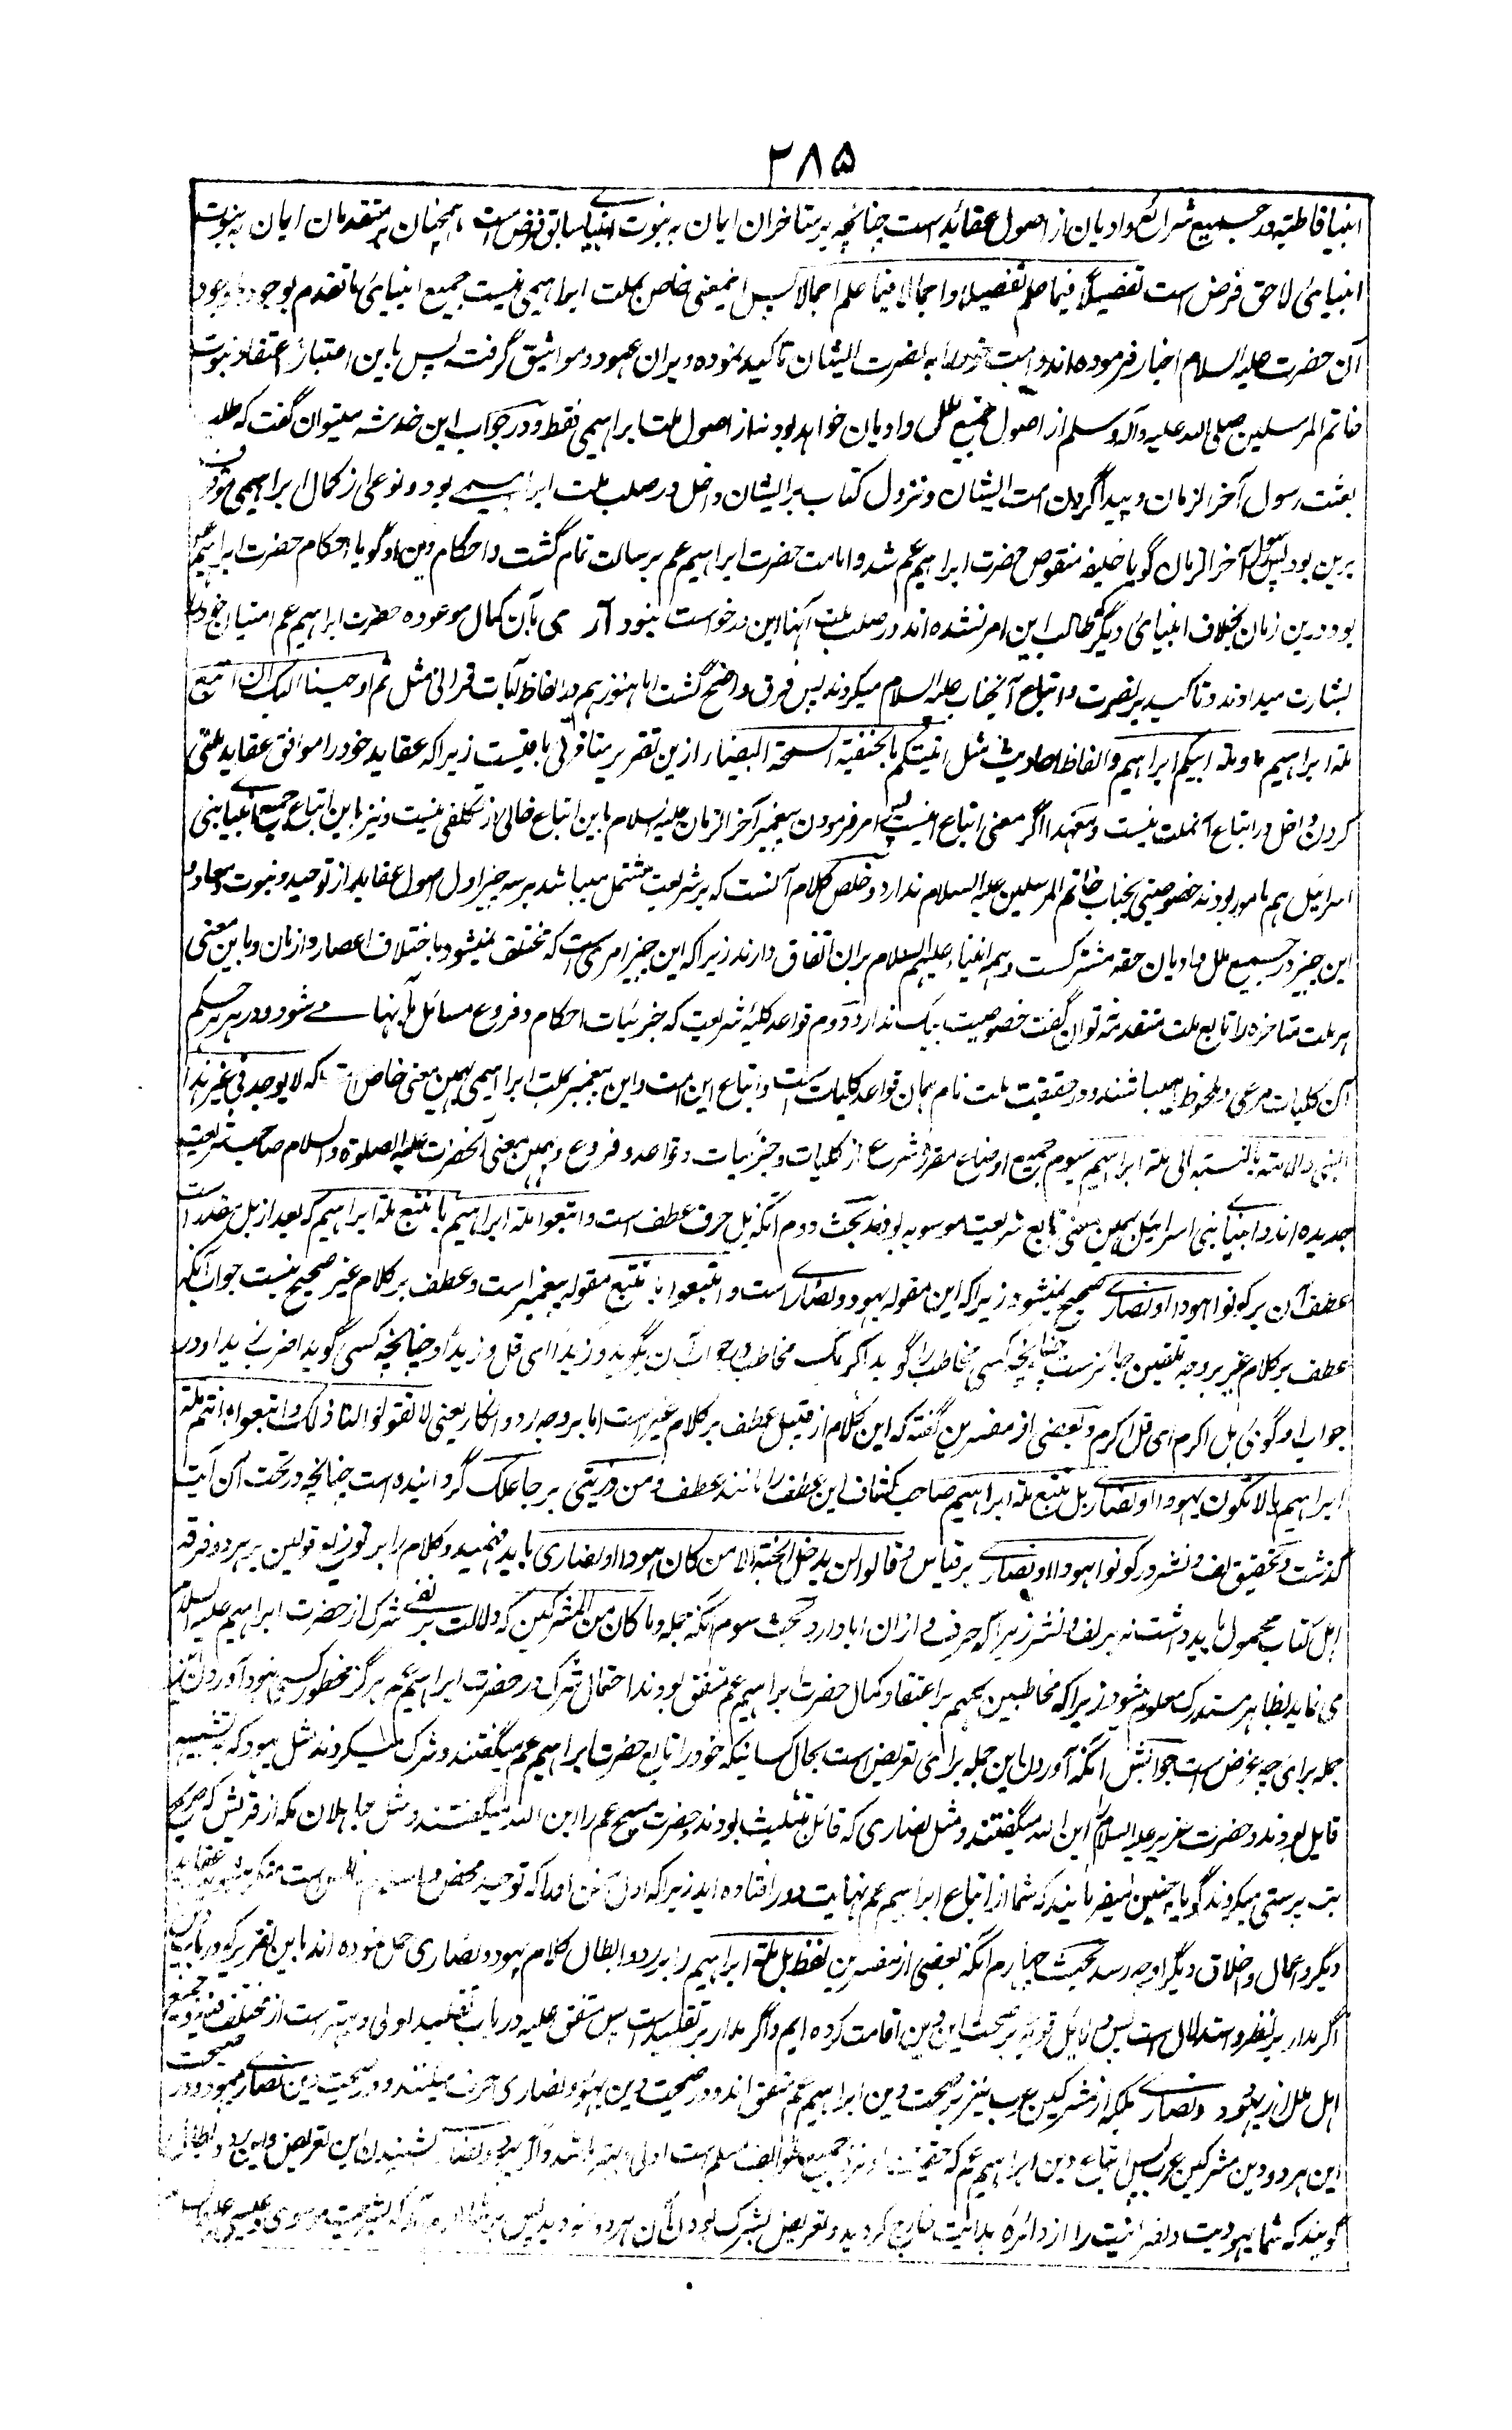 ۲۸۵
انبیا قاطبة در جمیع شرائع و ادیان از اصول عقائد است چنانچه بر متاخران ایمان به نبوت انبیای سابق فرض است همچنان بر متقدمان ایمان به نبوت
انبیای لاحق فرض است تفصیلا فیما علم تفصیلا و اجمالا فیما علم اجمالا پس اینمعنی خاص بملت ابراهیمی نیست جمیع انبیای ما تقدم بوجود باوجود
آن حضرت علیه السلام اخبار فرموده اند و امت خود را به نصرت ایشان تاکید نموده و بران عهود و مواثیق گرفته پس باین اعتبار اعتقاد نبوت
خاتم المرسلین صلی الله علیه وآله وسلم از اصول جمیع ملل و ادیان خواهد بود نه از اصول ملت ابراهیمی فقط و در جواب این خدشه میتوان گفت که طلب
بعثت رسول آخر الزمان و پیدا کردن امت ایشان و نزول کتاب بر ایشان داخل در صلب ملت ابراهیمی بود و نوعی از کمال ابراهیمی موقوف
برین بود پس رسول آخر الزمان گویا خلیفه منصوص حضرت ابراهیم عم شد و امامت حضرت ابراهیم عم برسالت تمام گشت و احکام دین او گویا احکام حضرت ابراهیم عم
بود درین زمان بخلاف انبیای دیگر که طالب این امر نشده اند و در صلب ملت آنها این درخواست نبود آری بآن کمال موعوده حضرت ابراهیم عم امتیان خود را
بشارت میدادند و تاکید بر نصرت و اتباع آنجناب علیه السلام میکردند پس فرق واضح گشت اما هنوز هم در الفاظ آیات قرآنی مثل ثم اوحینا الیک ان اتبع
ملة ابراهیم و ملة ابیکم ابراهیم و الفاظ احادیث مثل اتیتکم بالحنفیة السمحة البیضاء ازین تقریر منافرتی باقیست زیرا که عقاید خود را موافق عقاید ملتی
کردن داخل در اتباع آنملت نیست و معهذا اگر معنی اتباع اینست پس امر فرمودن پیغمبر آخر الزمان علیه السلام باین اتباع خالی از تکلفی نیست و نیز باین اتباع جمیع انبیای بنی
اسرائیل هم مامور بودند خصوصیتی بجناب خاتم المرسلین علیه السلام ندارد و مخلص کلام آنست که هر شریعت مشتمل میباشد بر سه چیز اول اصول عقاید از توحید و نبوت و معاد و
این چیز در جمیع ملل و ادیان حقه مشترکست و همه انبیاء علیهم السلام بران اتفاق دارند زیرا که این چیز امری است که مختلف نمیشود باختلاف اعصار و ازمان و باین معنی
هر ملت متاخره را تابع ملت متقدمه توان گفت خصوصیت بیک ندارد دوم قواعد کلیه شریعت که جزئیات احکام و فروع مسائل بآنها می شود و در هر حکم
آن کلیات مرعی و ملحوظ میباشند و در حقیقت ملت نام همان قواعد کلیات است و اتباع این امت و این پیغمبر بملت ابراهیمی بهمین معنی خاص است که لا یوجد فی غیر هذا
النبی والامة بالنسبة الی ملة ابراهیم سیوم جمیع اوضاع مقرره شرع از کلیات و جزئیات و قواعد و فروع و بهمین معنی آنحضرت علیه الصلوة والسلام صاحب شریعت
جدیده اند و انبیای بنی اسرائیل بهمین معنی تابع شریعت موسویه بودند بحث دوم آنکه بل حرف عطف است و اتبعوا ملة ابراهیم یا نتبع ملة ابراهیم که بعد از بل مقدر است
عطف آن بر کونوا هودا او نصاری صحیح نمیشود زیرا که این مقوله یهود و نصاری است و اتبعوا یا نتبع مقوله پیغمبر است و عطف بر کلام غیر صحیح نیست جواب آنکه
عطف بر کلام غیر بر وجه تلقین جائز است چنانچه کسی مخاطب را گوید اکرمک مخاطب در جواب آن بگوید و زیدا ای قل و زیدا و چنانچه کسی گوید اضرب زیدا و در
جواب او گوئی بل اکرم ای قل اکرم و بعضی از مفسرین گفته که این کلام از قبیل عطف بر کلام غیر است اما بر وجه رد و انکار یعنی لا تقولوا لنا ذلک و اتبعوا انتم ملة
ابراهیم یا لا نکون یهودا او نصاری بل نتبع ملة ابراهیم صاحب کشاف این عطف را مانند عطف و من ذریتی بر جاعلک گردانیده است چنانچه در تحت آن آیت
گذشت و تحقیق لف و نشر در کونوا هودا او نصاری بر قیاس و قالوا لن یدخل الجنة الا من کان هودا او نصاری باید فهمید و کلام را بر توزیع قولین بر هر دو فرقه
اهل کتاب محمول باید داشت نه بر لف و نشر زیرا که حرف او ازان ابا دارد بحث سوم آنکه جمله و ما کان من المشرکین که دلالت بر نفی شرک از حضرت ابراهیم علیه السلام
می نماید بظاهر مستدرک معلوم میشود زیرا که مخاطبین بهم بر اعتقاد کمال حضرت ابراهیم عم متفق بودند احتمال شرک در حضرت ابراهیم عم هرگز مخطور کسی نبود آوردن این
جمله برای چه غرض است جوابش آنکه آوردن این جمله برای تعریض است بحال کسانیکه خود را تابع حضرت ابراهیم عم میگفتند و شرک میکردند مثل یهود که به تشبیه
قایل بودند و حضرت عزیر علیه السلام را ابن الله میگفتند و مثل نصاری که قائل تثلیث بودند و حضرت مسیح عم را ابن الله میگفتند و مثل جاهلان مکه از قریش که صریح
بت پرستی میکردند گویا چنین میفرمایند که شما از اتباع ابراهیم عم نهایت دور افتاده اید زیرا که اول سخن او را که توحید محض و است منکر عقاید
دیگر و اعمال و اخلاق دیگر او چه رسد بحث چهارم آنکه بعضی از مفسرین لفظ بل ملة ابراهیم را بر رد و ابطال کلام یهود و نصاری حمل نموده اند باین تقریر که در باب دین
اگر مدار بر نظر و استدلال است پس دلایل قویه بر صحت این دین اقامت کرده ایم و اگر مدار بر تقلید است پس متفق علیه در باب تقلید اولی و بهتر است از مختلف فیه و جمیع
اهل ملل از یهود و نصاری بلکه از مشرکین عرب نیز بر صحت دین ابراهیم عم متفق اند و در صحت دین یهود و نصاری حرف میکنند و در صحت دین نصاری یهود و در صحت
این هر دو دین مشرکین عرب پس اتباع دین ابراهیم عم که حقیقت او نزد جمیع طوائف مسلم است اولی و بهتر باشد و اگر یهود و نصاری شنیدن این تعریض و این رد و ابطال
گویند که شما یهودیت و نصرانیت را از دائره هدایت خارج کردید و تعریض بشرک بودن آن هر دو نمودید پس